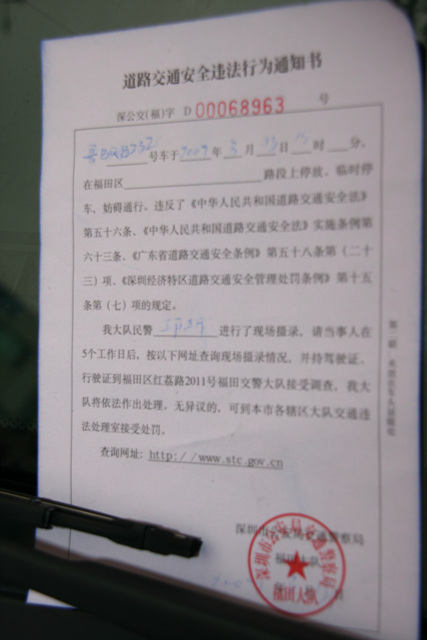 道路交通安全违法行为通知书
深公交(福)字 D 00068963 号
号车于2009年3月13日15时 分,
在福田区 路段上停放、临时停
车、妨碍通行。违反了《中华人民共和国道路交通安全法》
第五十六条、《中华人民共和国道路交通安全法》实施条例第
六十三条、《广东省道路交通安全条例》第五十八条第(二十
三)项、《深圳经济特区道路交通安全管理处罚条例》第十五
条第(七)项的规定。
我大队民警 进行了现场摄录,请当事人在
5个工作日后,按以下网址查询现场摄录情况,并持驾驶证、
行驶证到福田区红荔路2011号福田交警大队接受调查,我大
队将依法作出处理。无异议的,可到本市各辖区大队交通违
法处理室接受处罚。
查询网址:http://www.stc.gov.cn
深圳市公安局交通警察局
福田大队
深圳市公安局交通警察局
福田大队